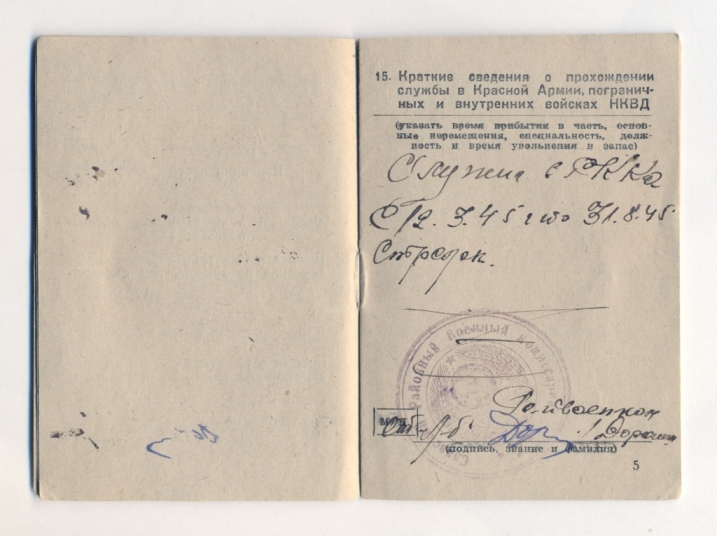 15. Краткие сведения о прохождении
службы в Красной Армии, погранич-
ных и внутренних войсках НКВД
(указать время прибытия в часть, основ-
ные перемещения, специальность, долж-
ность и время увольнения в запас)
Служил в РККа
С 12.3.45 г по 31.8.45
Стрелок.
Районный военный
Райвоенком
(подпись, звание и фамилия)
5